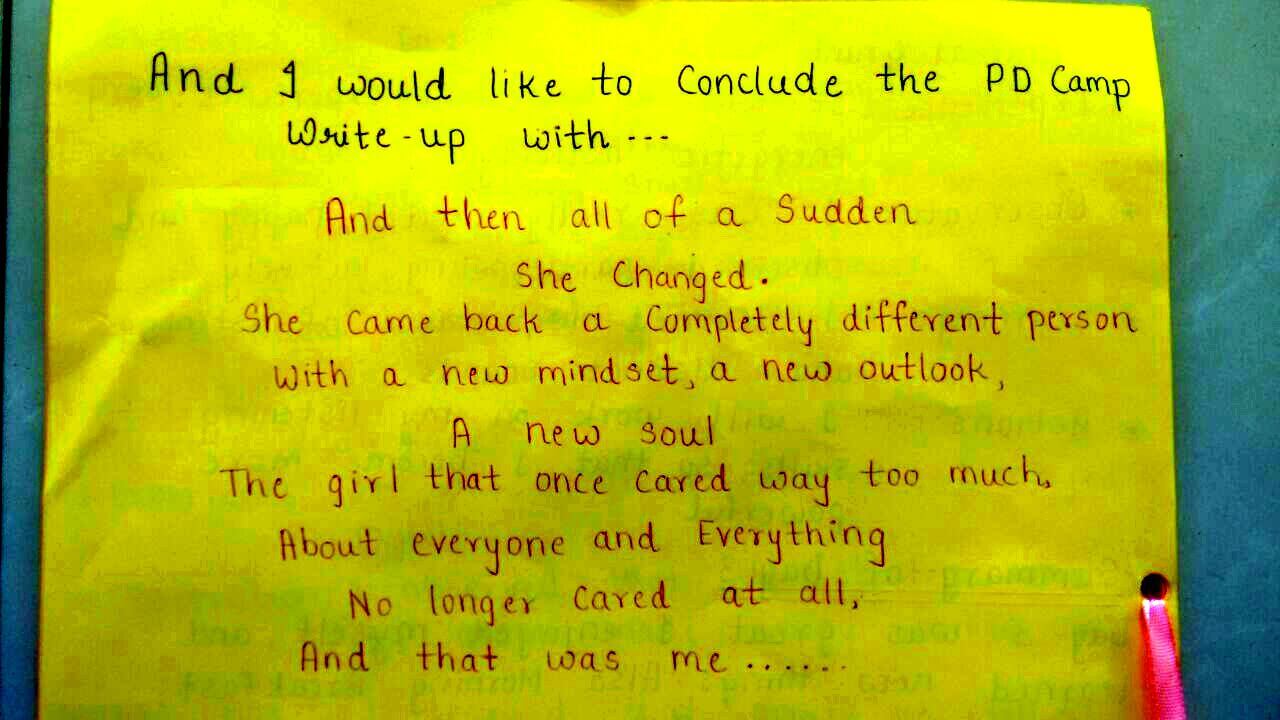 And I would like to Conclude the PD Camp
Write-up with ---
And then all of a Sudden
She Changed.
She came back a Completely different person
With a new mindset, a new outlook,
A new soul
The girl that once cared way too much,
About everyone and Everything
No longer cared at all,
And that was me ......